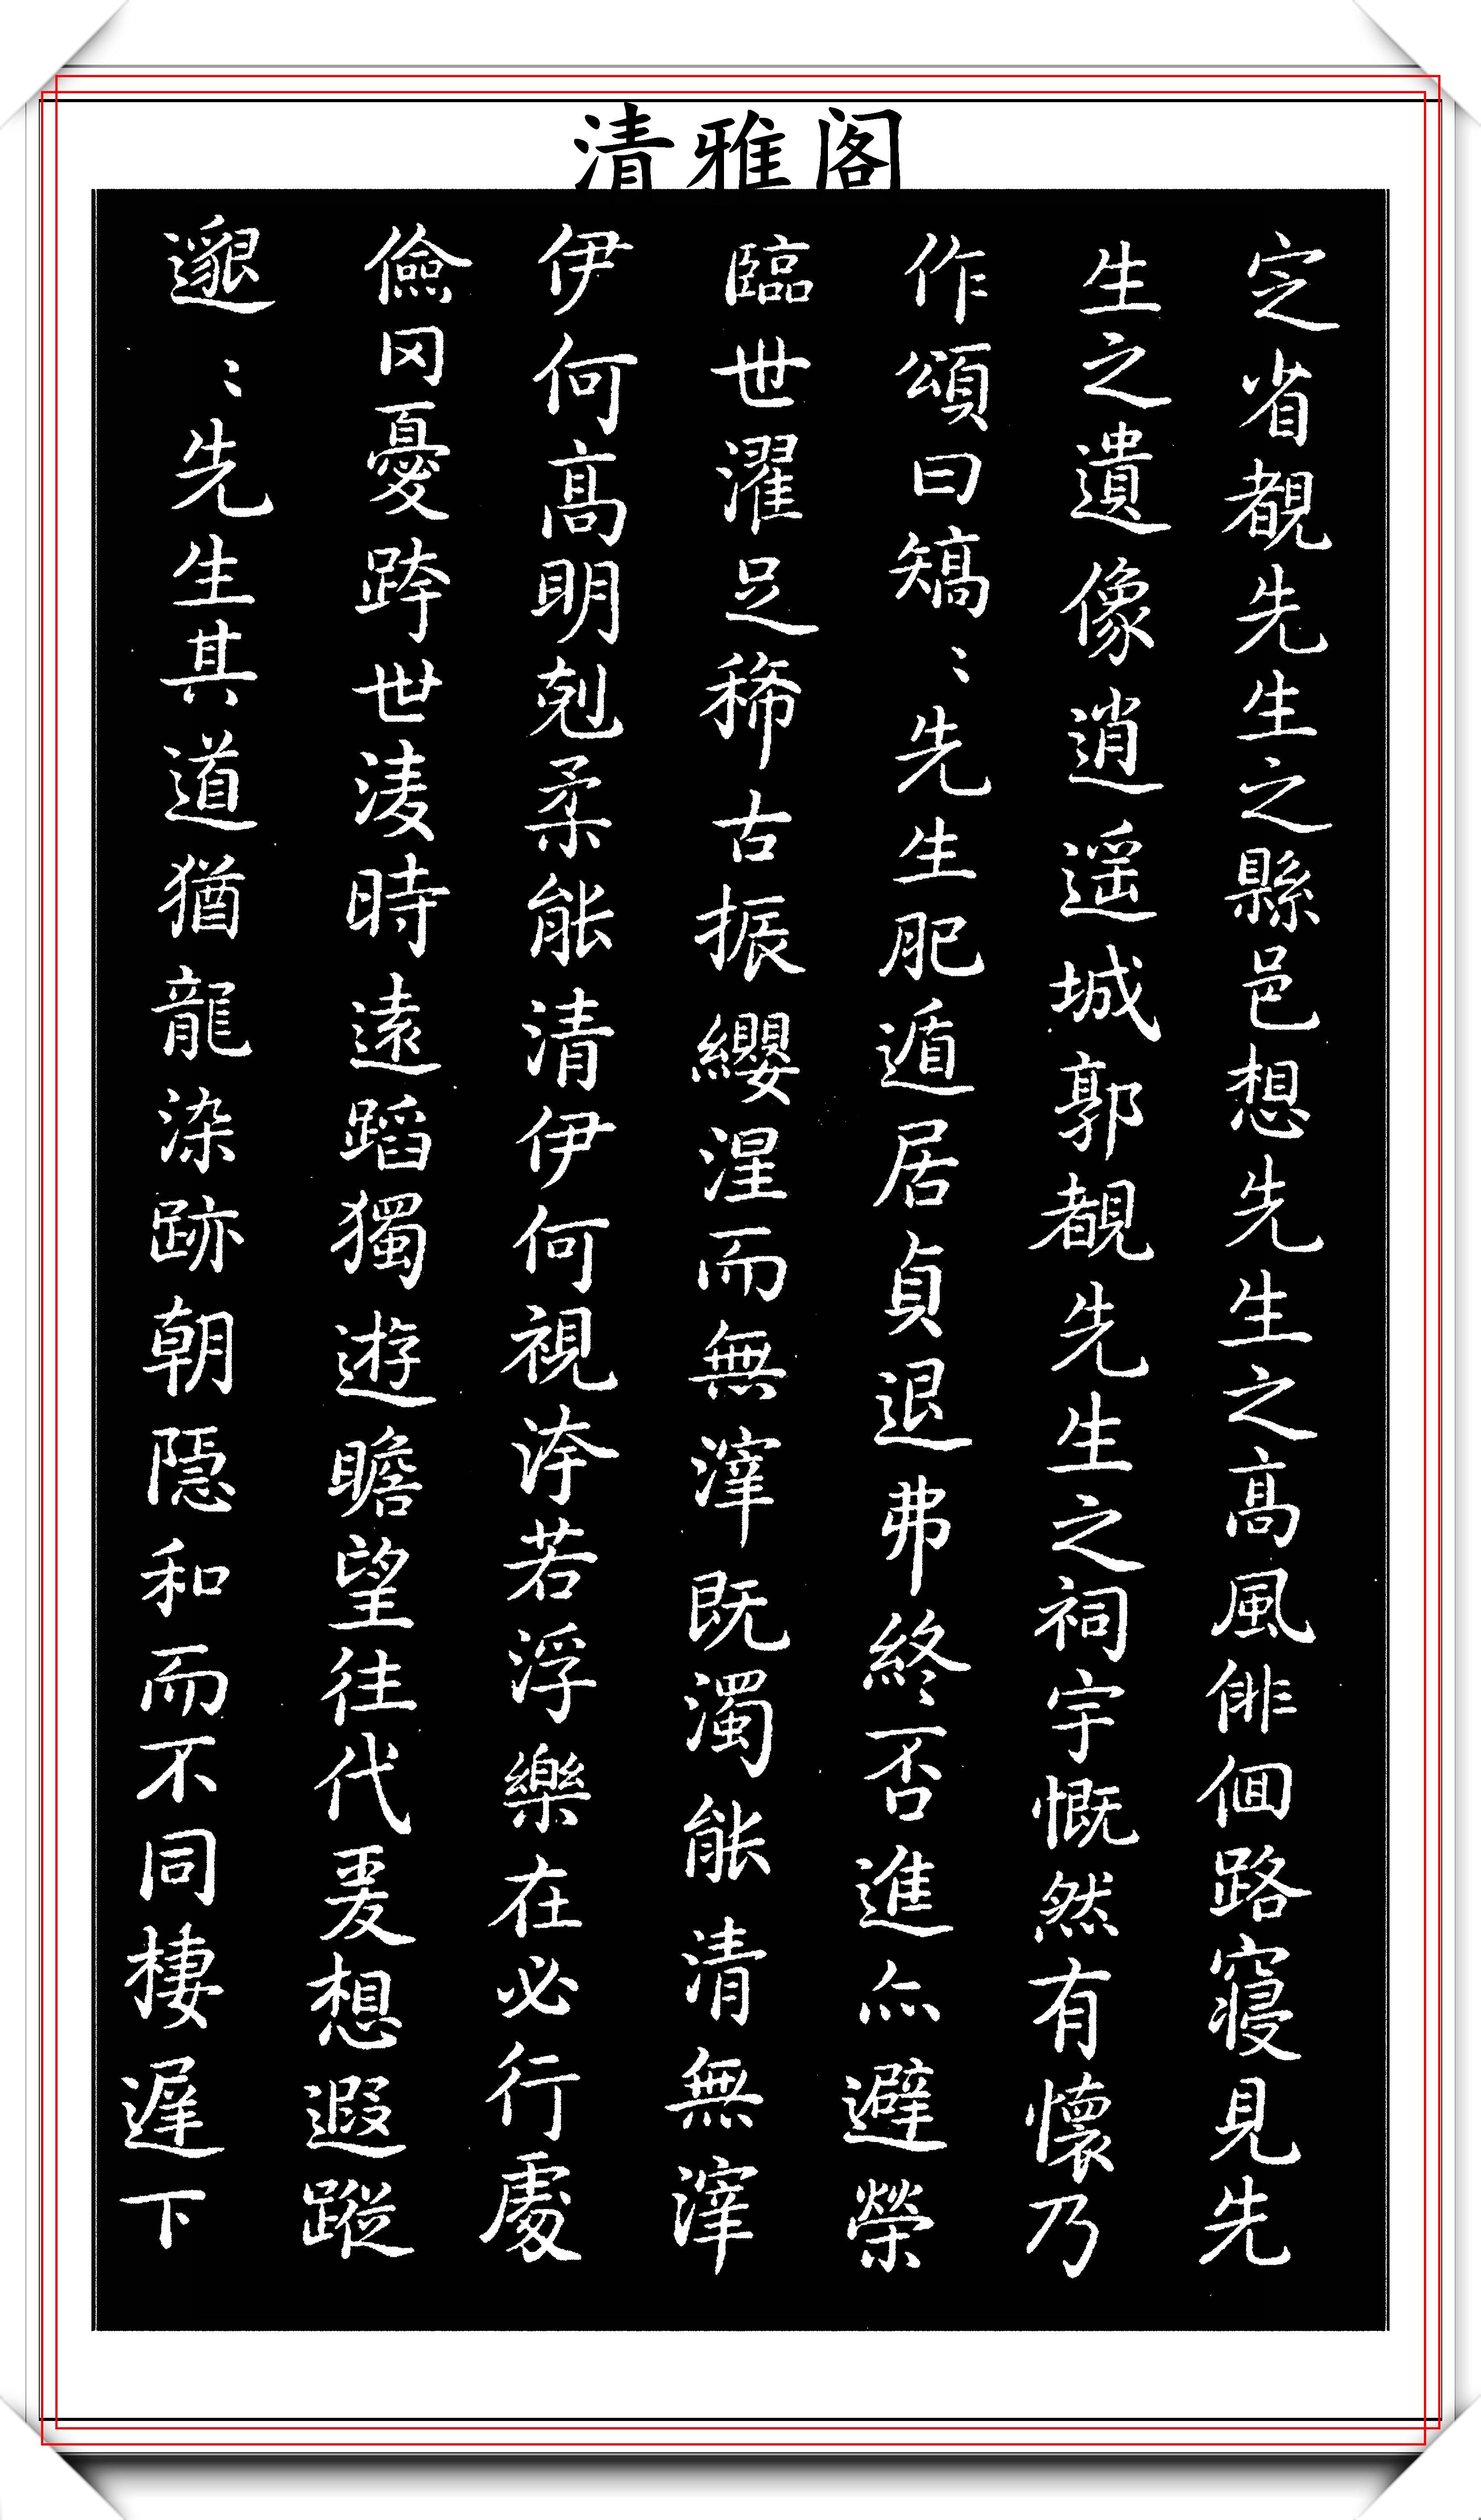 清雅阁
定省覩先生之縣邑想先生之高風徘徊路寢見先
生之遺像逍遥城郭覩先生之祠宇慨然有懷乃
作頌曰矯〻先生肥遁居貞退弗終否進亦避榮
臨世濯足稀古振纓涅而無滓既濁能清無滓
伊何高明剋柔能清伊何視洿若浮樂在必行處
儉罔憂跨世凌時遠蹈獨遊瞻望往代爰想遐蹤
邈〻先生其道猶龍染跡朝隱和而不同棲遲下